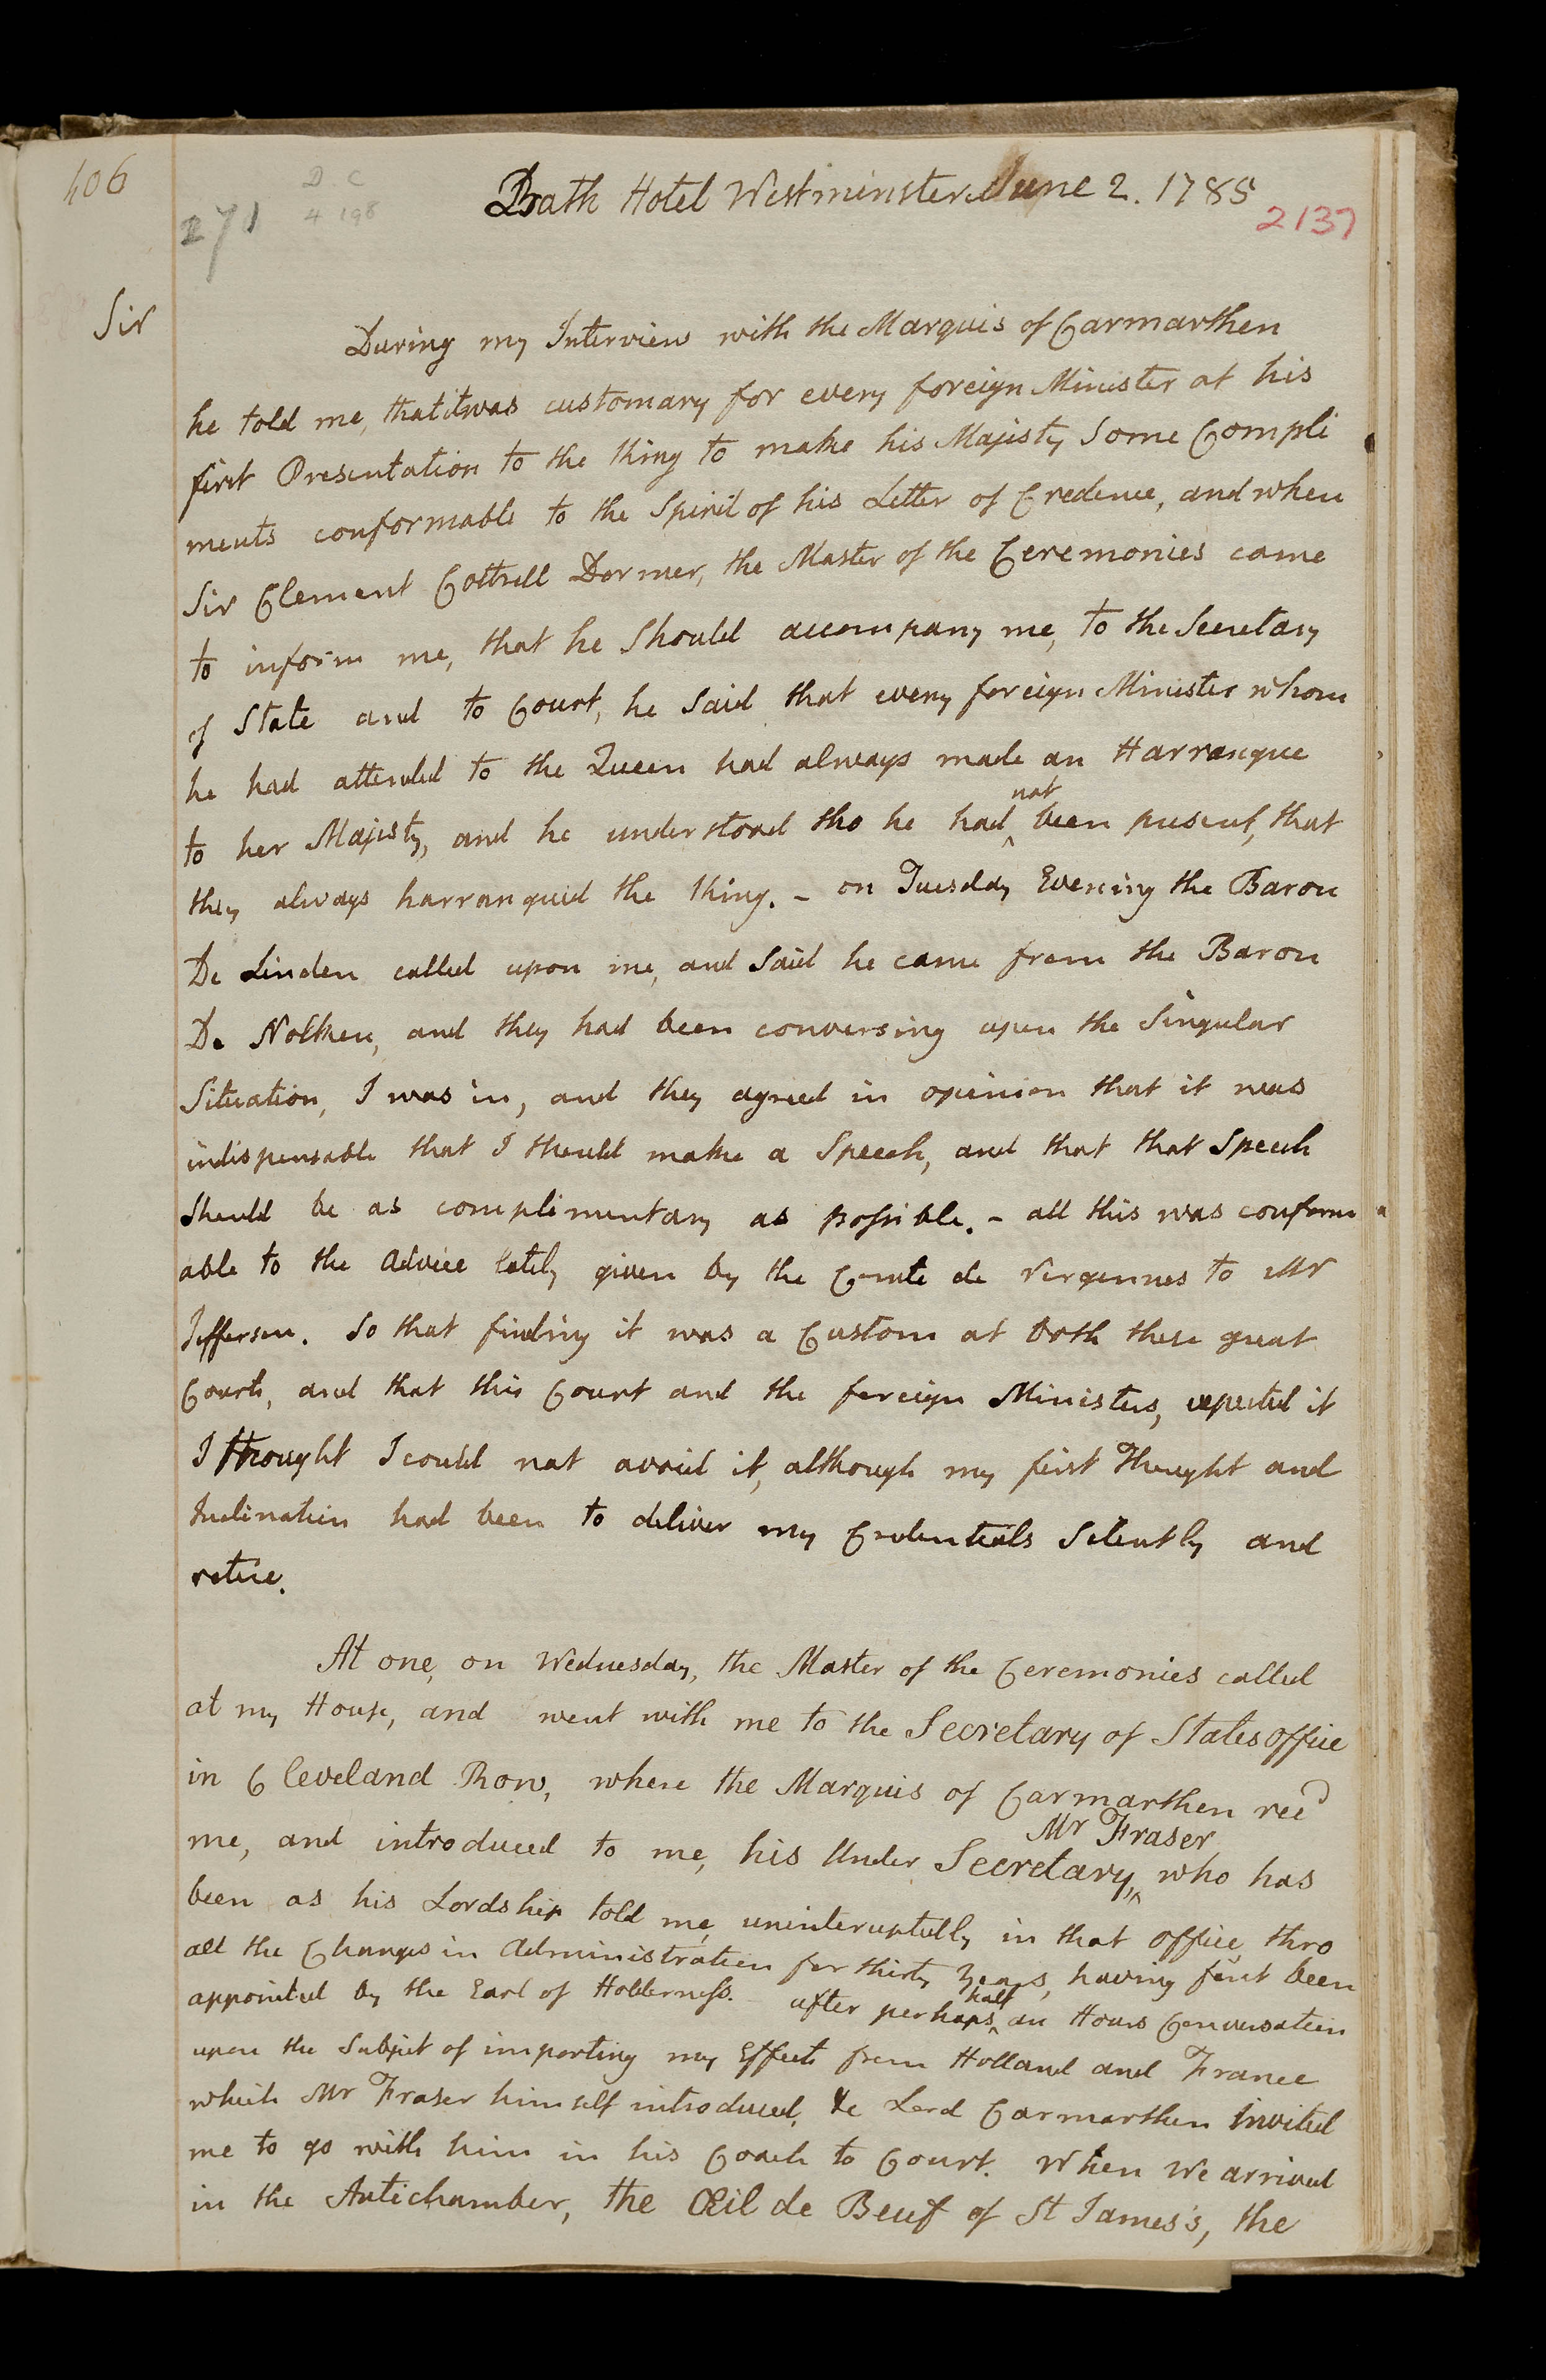 406
271
D. C
4 198
Bath Hotel Westminster June 2. 1785
2137
Sir
During my Interview with the Marquis of Carmarthen
he told me, that it was customary for every foreign Minister at his
first Presentation to the King to make his Majesty Some Compli
ments conformable to the Spirit of his Letter of Credence, and when
Sir Clement Cottrell Dormer, the Master of the Ceremonies came
to inform me, that he Should accompany me, to the Secretary
of State and to Court, he Said that every foreign Minister whom
he had attended to the Queen had always made an Harrangue
to her Majesty, and he understood tho he had not been present, that
they always harrangued the King. – on Tuesday Evening the Baron
De Linden called upon me, and Said he came from the Baron
De Nolken, and they had been conversing upon the Singular
Situation, I was in, and they agreed in opinion that it was
indispensable that I Should make a Speech, and that that Speech
Should be as complimentary as possible. – all this was conform
able to the Advice lately given by the Comte de Vergennes to Mr
Jefferson. So that finding it was a Custom at both these great
Courts, and that this Court and the foreign Ministers, expected it
I thought I could not avoid it, although my first Thought and
Inclination had been to deliver my Credentials Silently and
retire.
At one, on Wednesday, the Master of the Ceremonies called
at my House, and went with me to the Secretary of States office
in Cleveland Row, where the Marquis of Carmarthen recd
me, and introduced to me, his Under Secretary, Mr Fraser who has
been as his Lordship told me, uninteruptedly in that office, thro
all the Changes in Administration for thirty Years, having first been
appointed by the Earl of Holderness. after perhaps half an Hours Conversation
upon the Subject of importing my Effects from Holland and France
which Mr Fraser himself introduced, Lord Carmarthen Invited
me to go with him in his Coach to Court. When We arrived
in the Antichamber, the Œil de Beuf of St James's, the